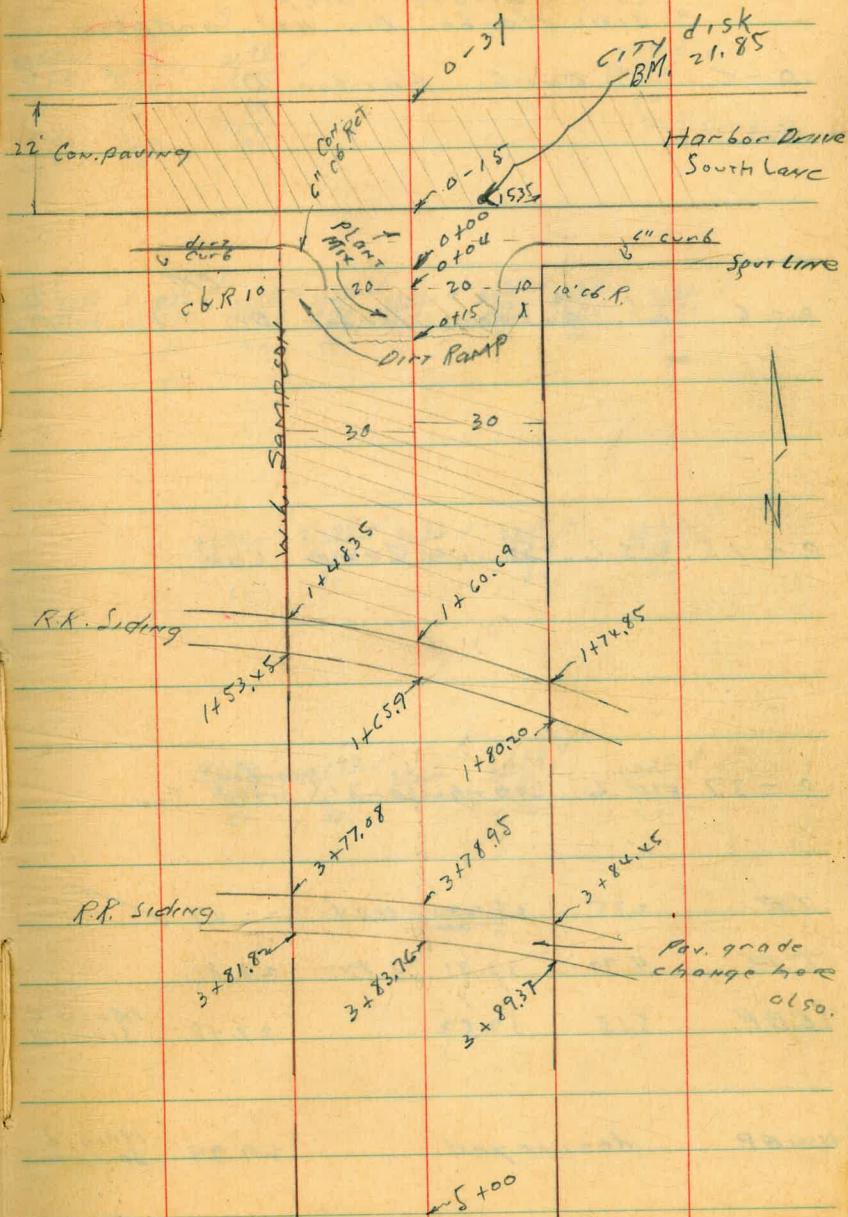 0-37
CITY disk
B.M. 21.85
22' Con. paving
6" Con. cb. Ret.
Harbor Drive
South Lane
0-15
1535
PLANT
MIX
0+00
0+04
dirt
curb
6" curb
Spur Line
cb. R 10
20
20
10
10' cb. R.
0+15
DIRT RAMP
30
30
SAMPSON
N
1+48.35
1+60.69
1+74.85
R.R. Siding
1+53.45
1+65.9
1+80.20
3+77.08
3+78.95
3+84.45
R.R. Siding
3+81.82
3+83.76
3+89.37
Pav. grade
change here
also.
5+00